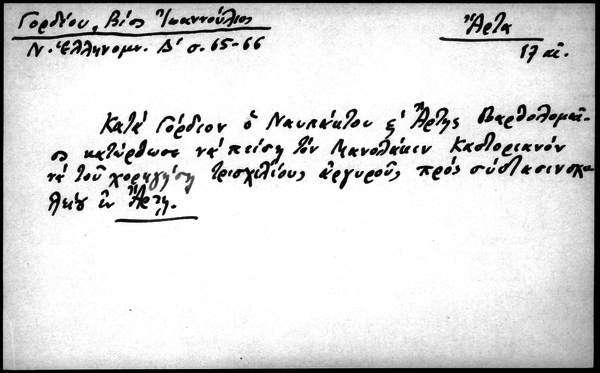 Γορδίου, Βίος Ἰωαννούλιος
Ν. Ἑλληνομν. Δ' σ. 65-66
Ἄρτα
17 αἰ.
Κατά Γόρδιον ὁ Ναυπάκτου & Ἄρτης Βαρθολομαῖ-
ος κατώρθωσε νά πείσῃ τόν Μανολάκιν Καστοριανόν
νά τοῦ χορηγήσῃ τρισχιλίους ἀργυροῦς πρός σύστασιν σχο-
λείου ἐν Ἄρτῃ.